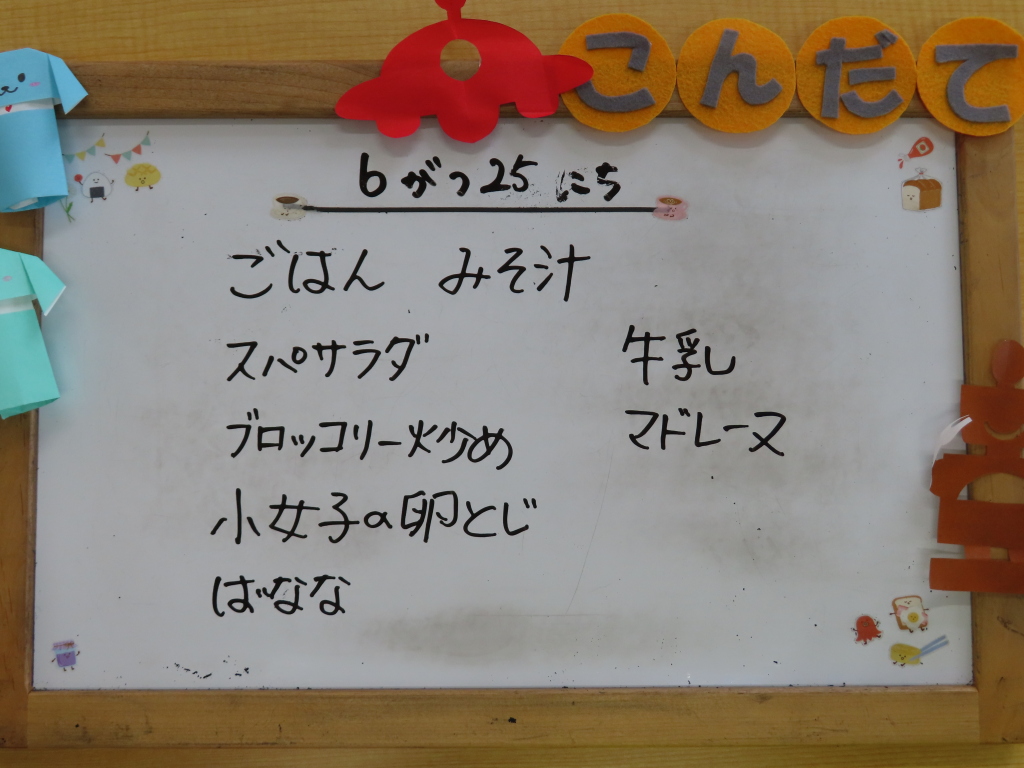 こんだて
6がつ25にち
ごはん みそ汁
スパサラダ
ブロッコリー炒め
小女子の卵とじ
ばなな
牛乳
マドレーヌ